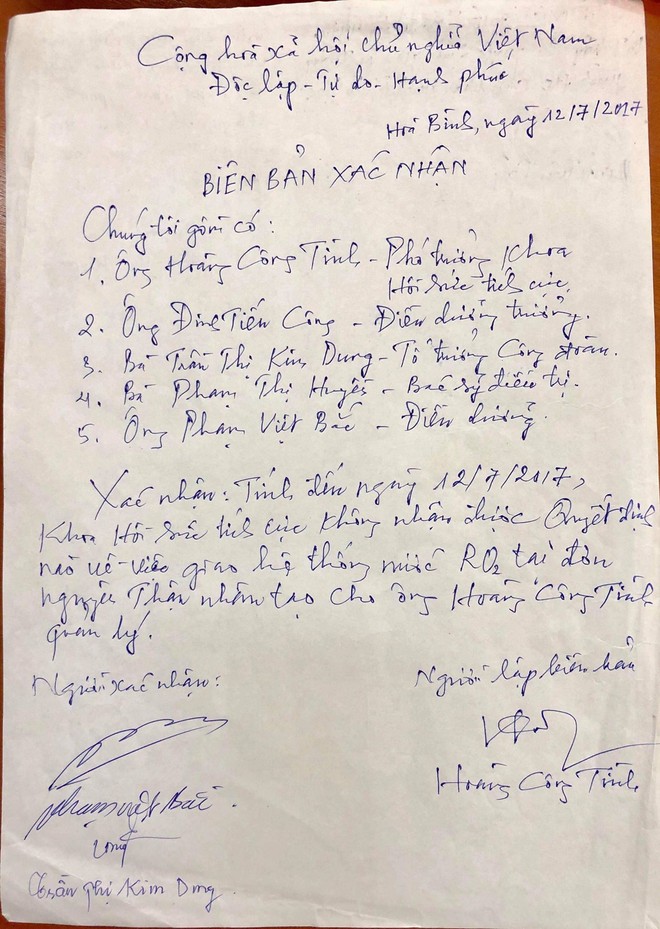 Cộng hoà xã hội chủ nghĩa Việt Nam
Độc lập - Tự do - Hạnh phúc.
Hoà Bình, ngày 12/7/2017
BIÊN BẢN XÁC NHẬN
Chúng tôi gồm có:
1. Ông Hoàng Công Tình - Phó trưởng khoa
Hồi sức tích cực.
2. Ông Đinh Tiến Công - Điều dưỡng trưởng.
3. Bà Trần Thị Kim Dung - Tổ trưởng Công đoàn.
4. Bà Phạm Thị Huyền - Bác sỹ điều trị.
5. Ông Phạm Việt Bắc - Điều dưỡng.
Xác nhận: Tính đến ngày 12/7/2017,
Khoa Hồi sức tích cực không nhận được Quyết định
nào về việc giao hệ thống nước RO2 tại đơn
nguyên Thận nhân tạo cho ông Hoàng Công Tình
quản lý.
Người xác nhận:
Người lập biên bản
Hoàng Công Tình
Phạm Việt Bắc
Trần Thị Kim Dung